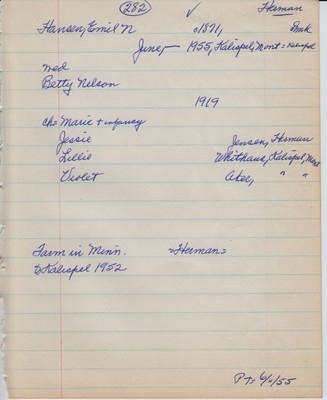 282 ✓ Herman
Hansen, Emil N c1871, Dmk
June, - 1955, Kalispel, Mont =
wed
Betty Nelson
1919
ch= Marie + infancy
Jessie Jensen, Herman
Lillie Whithaus, Kalispel, Mont
Violet Aker, " "
Farm in Minn. =Herman=
to Kalispel 1952
PT= 6/-/55